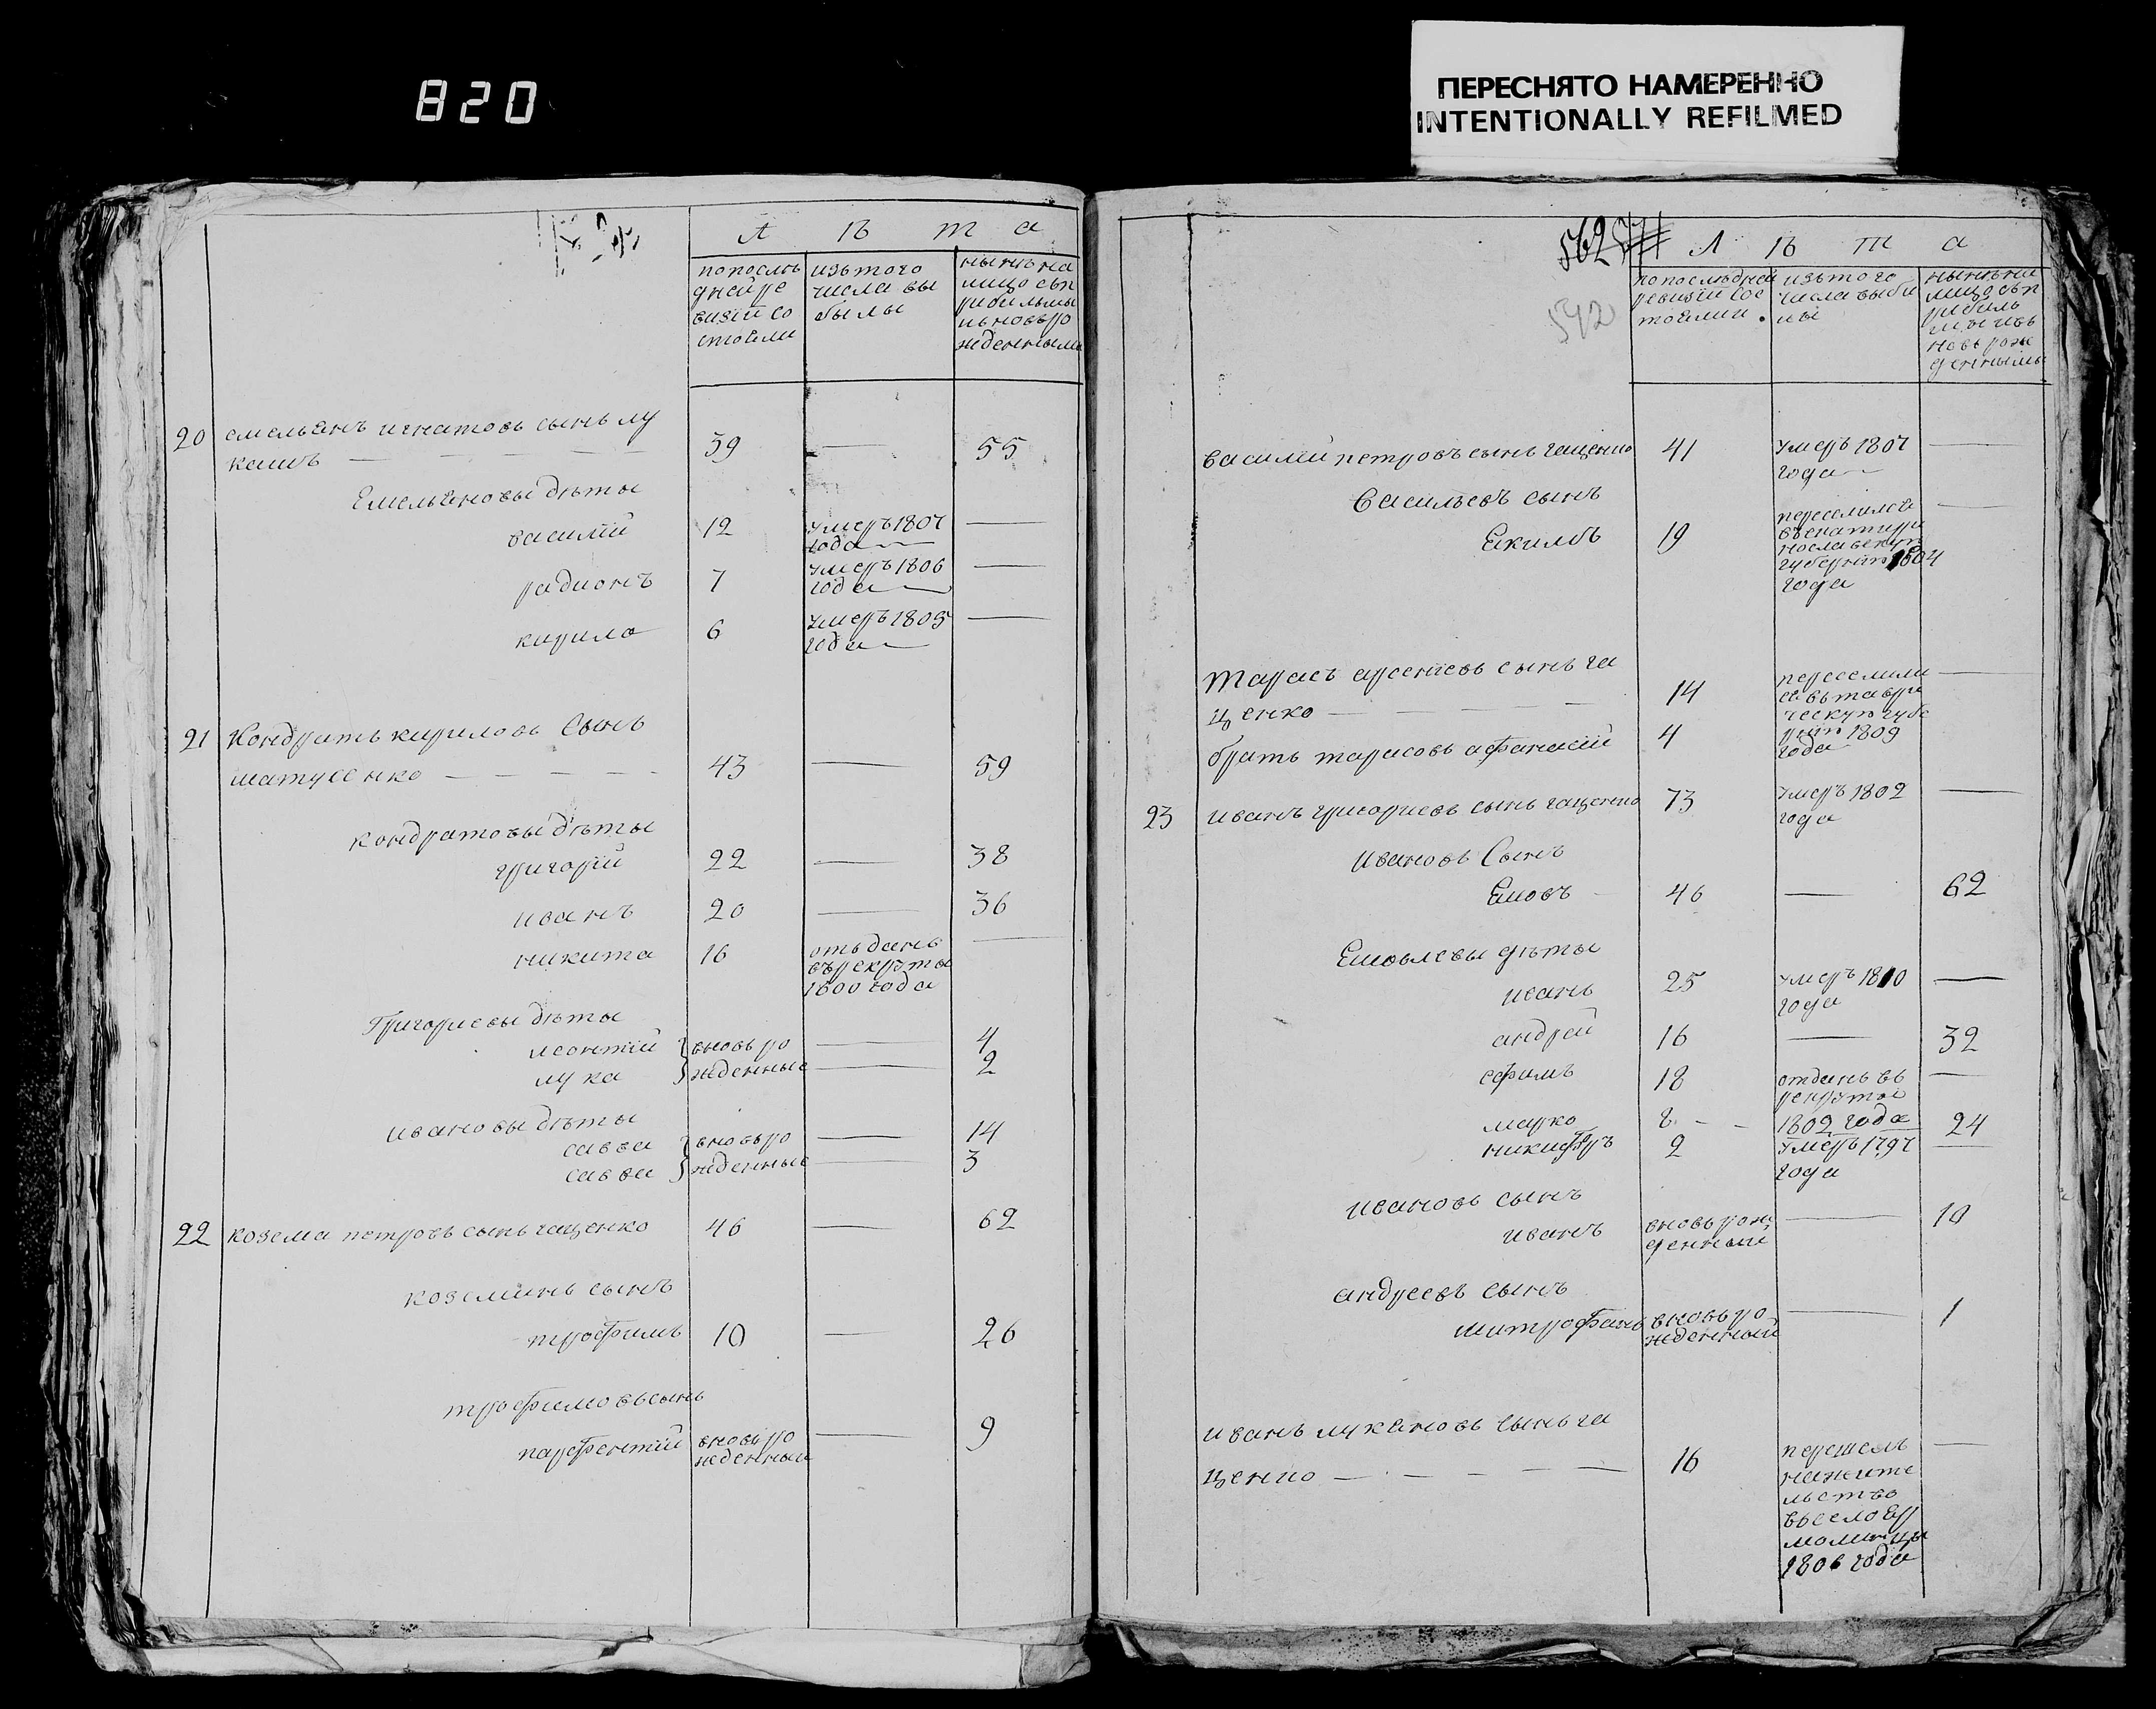 820
ПЕРЕСНЯТО НАМЕРЕННО
INTENTIONALLY REFILMED
Л ѣ т а
попослѣ
днейре
визіи со
стояли
изътого
числа вы
былы
нынѣ на
лицо съп
рибылыми
ивновьро
жденными
20 емельянъ игнатовъ сынъ лу
кашъ — — — — — 39 — 55
Емельяновы дѣты
василій 12 умеръ 1807 —
года
радионъ 7 умеръ 1806 —
года
кирило 6 умеръ 1805 —
года
21 Кондратъ кириловъ Сынъ
матусенко — — — — — 43 — 59
кондратовы дѣты
григорій 22 — 38
иванъ 20 — 36
никита 16 отъданъ —
върекруты
1800 года
Григориевы дѣты
леонтій вновь ро — 4
лука жденные — 2
ивановы дѣты
савва вновь ро — 14
савва жденные — 3
22 козема петровъ сынъ гаценко 46 — 62
коземинъ сынъ
трофимъ 10 — 26
трофимовъ сынъ
парфентій вновь ро — 9
жденный
562
542
Л ѣ т а
попослѣдней
ревизіи сос
тояли.
изътого
числа выбы
лы
нынѣ на
лицо съп
рибылы
ми ивъ
новь рож
денными
василий петровъ сынъ гаценко 41 умеръ 1807 —
года
Васильевъ сынъ
Екимъ 19 переселился —
въекатери
нославскую
губернію 1804
года
Тарасъ арсениевъ сынъ га
ценко — — — — 14 переселили —
съ въ таври
ческую губе
рнію 1809
года
братъ тарасовъ афанасій 4
23 иванъ григориевъ сынъ гаценко 73 умеръ 1802 —
года
ивановъ Сынъ
Ековъ 46 — 62
Ековлевы дѣты
иванъ 25 умеръ 1810 —
года
андрей 16 — 32
ефимъ 18 отданъ въ —
рекруты
марко 8 — — 1802 года 24
никифоръ 2 умеръ 1797 —
года
ивановъ сынъ
иванъ вновь рож — 10
денный
андреевъ сынъ
митрофанъ вновь ро — 1
жденный
иванъ лукяновъ сынъ га
ценко — — — — — 16 перешелъ —
нажите
льство
въсело Ер
молинцы
1806 года